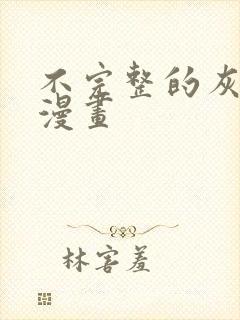 不完整的灰
漫畫
林害羞